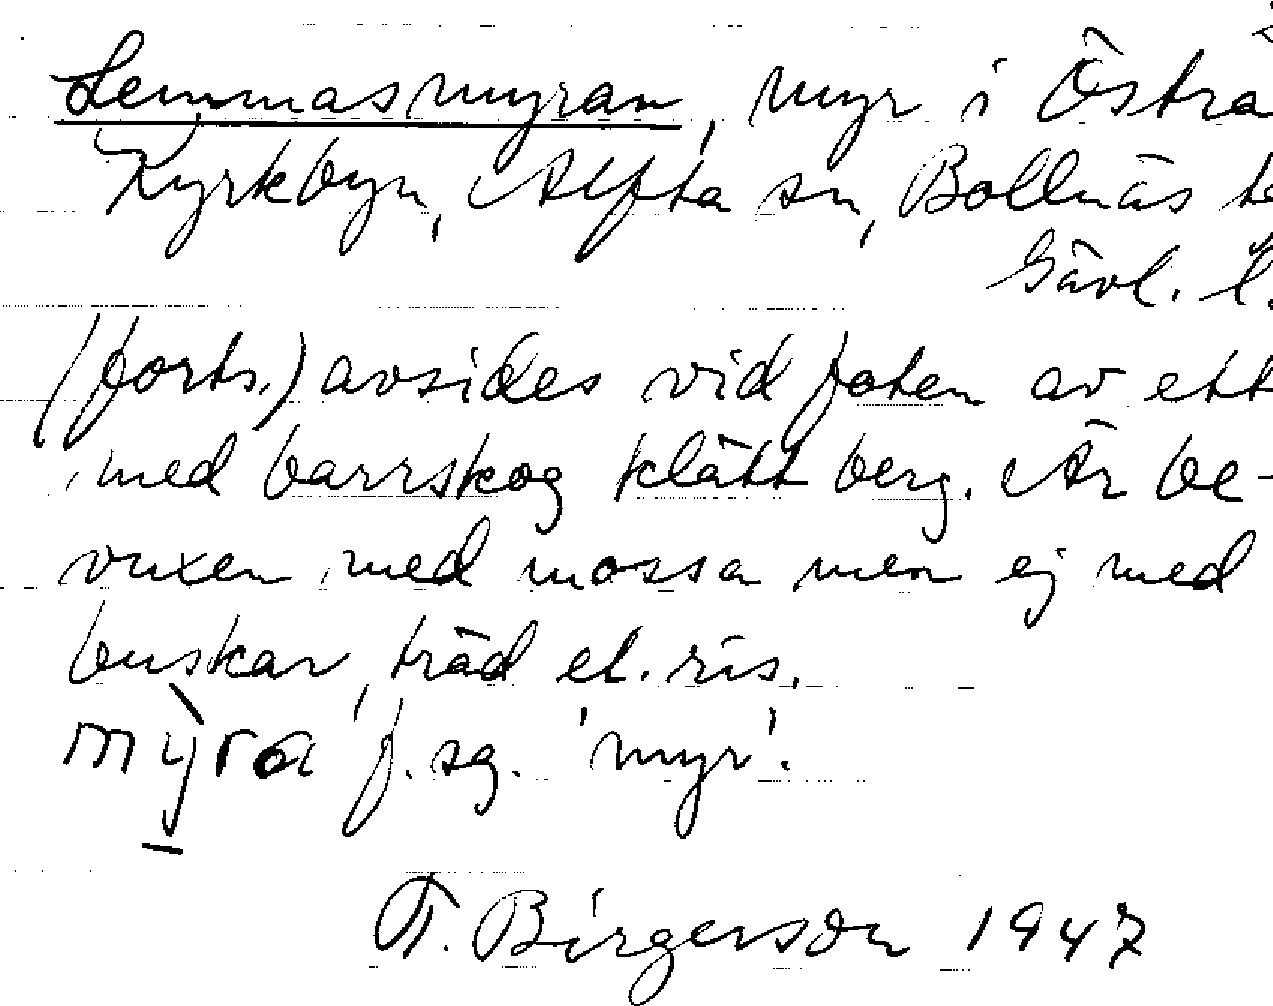 Lemmasmyran, myr i Östra
Kyrkbyn, Alfta sn, Bollnäs
Gävl. l.
(forts.) avsides vid foten av ett
med barrskog klätt berg. Är be-
vuxen med mossa men ej med
buskar, träd el. ris.
mỳra f. sg. 'myr'.
F. Birgerson 1947